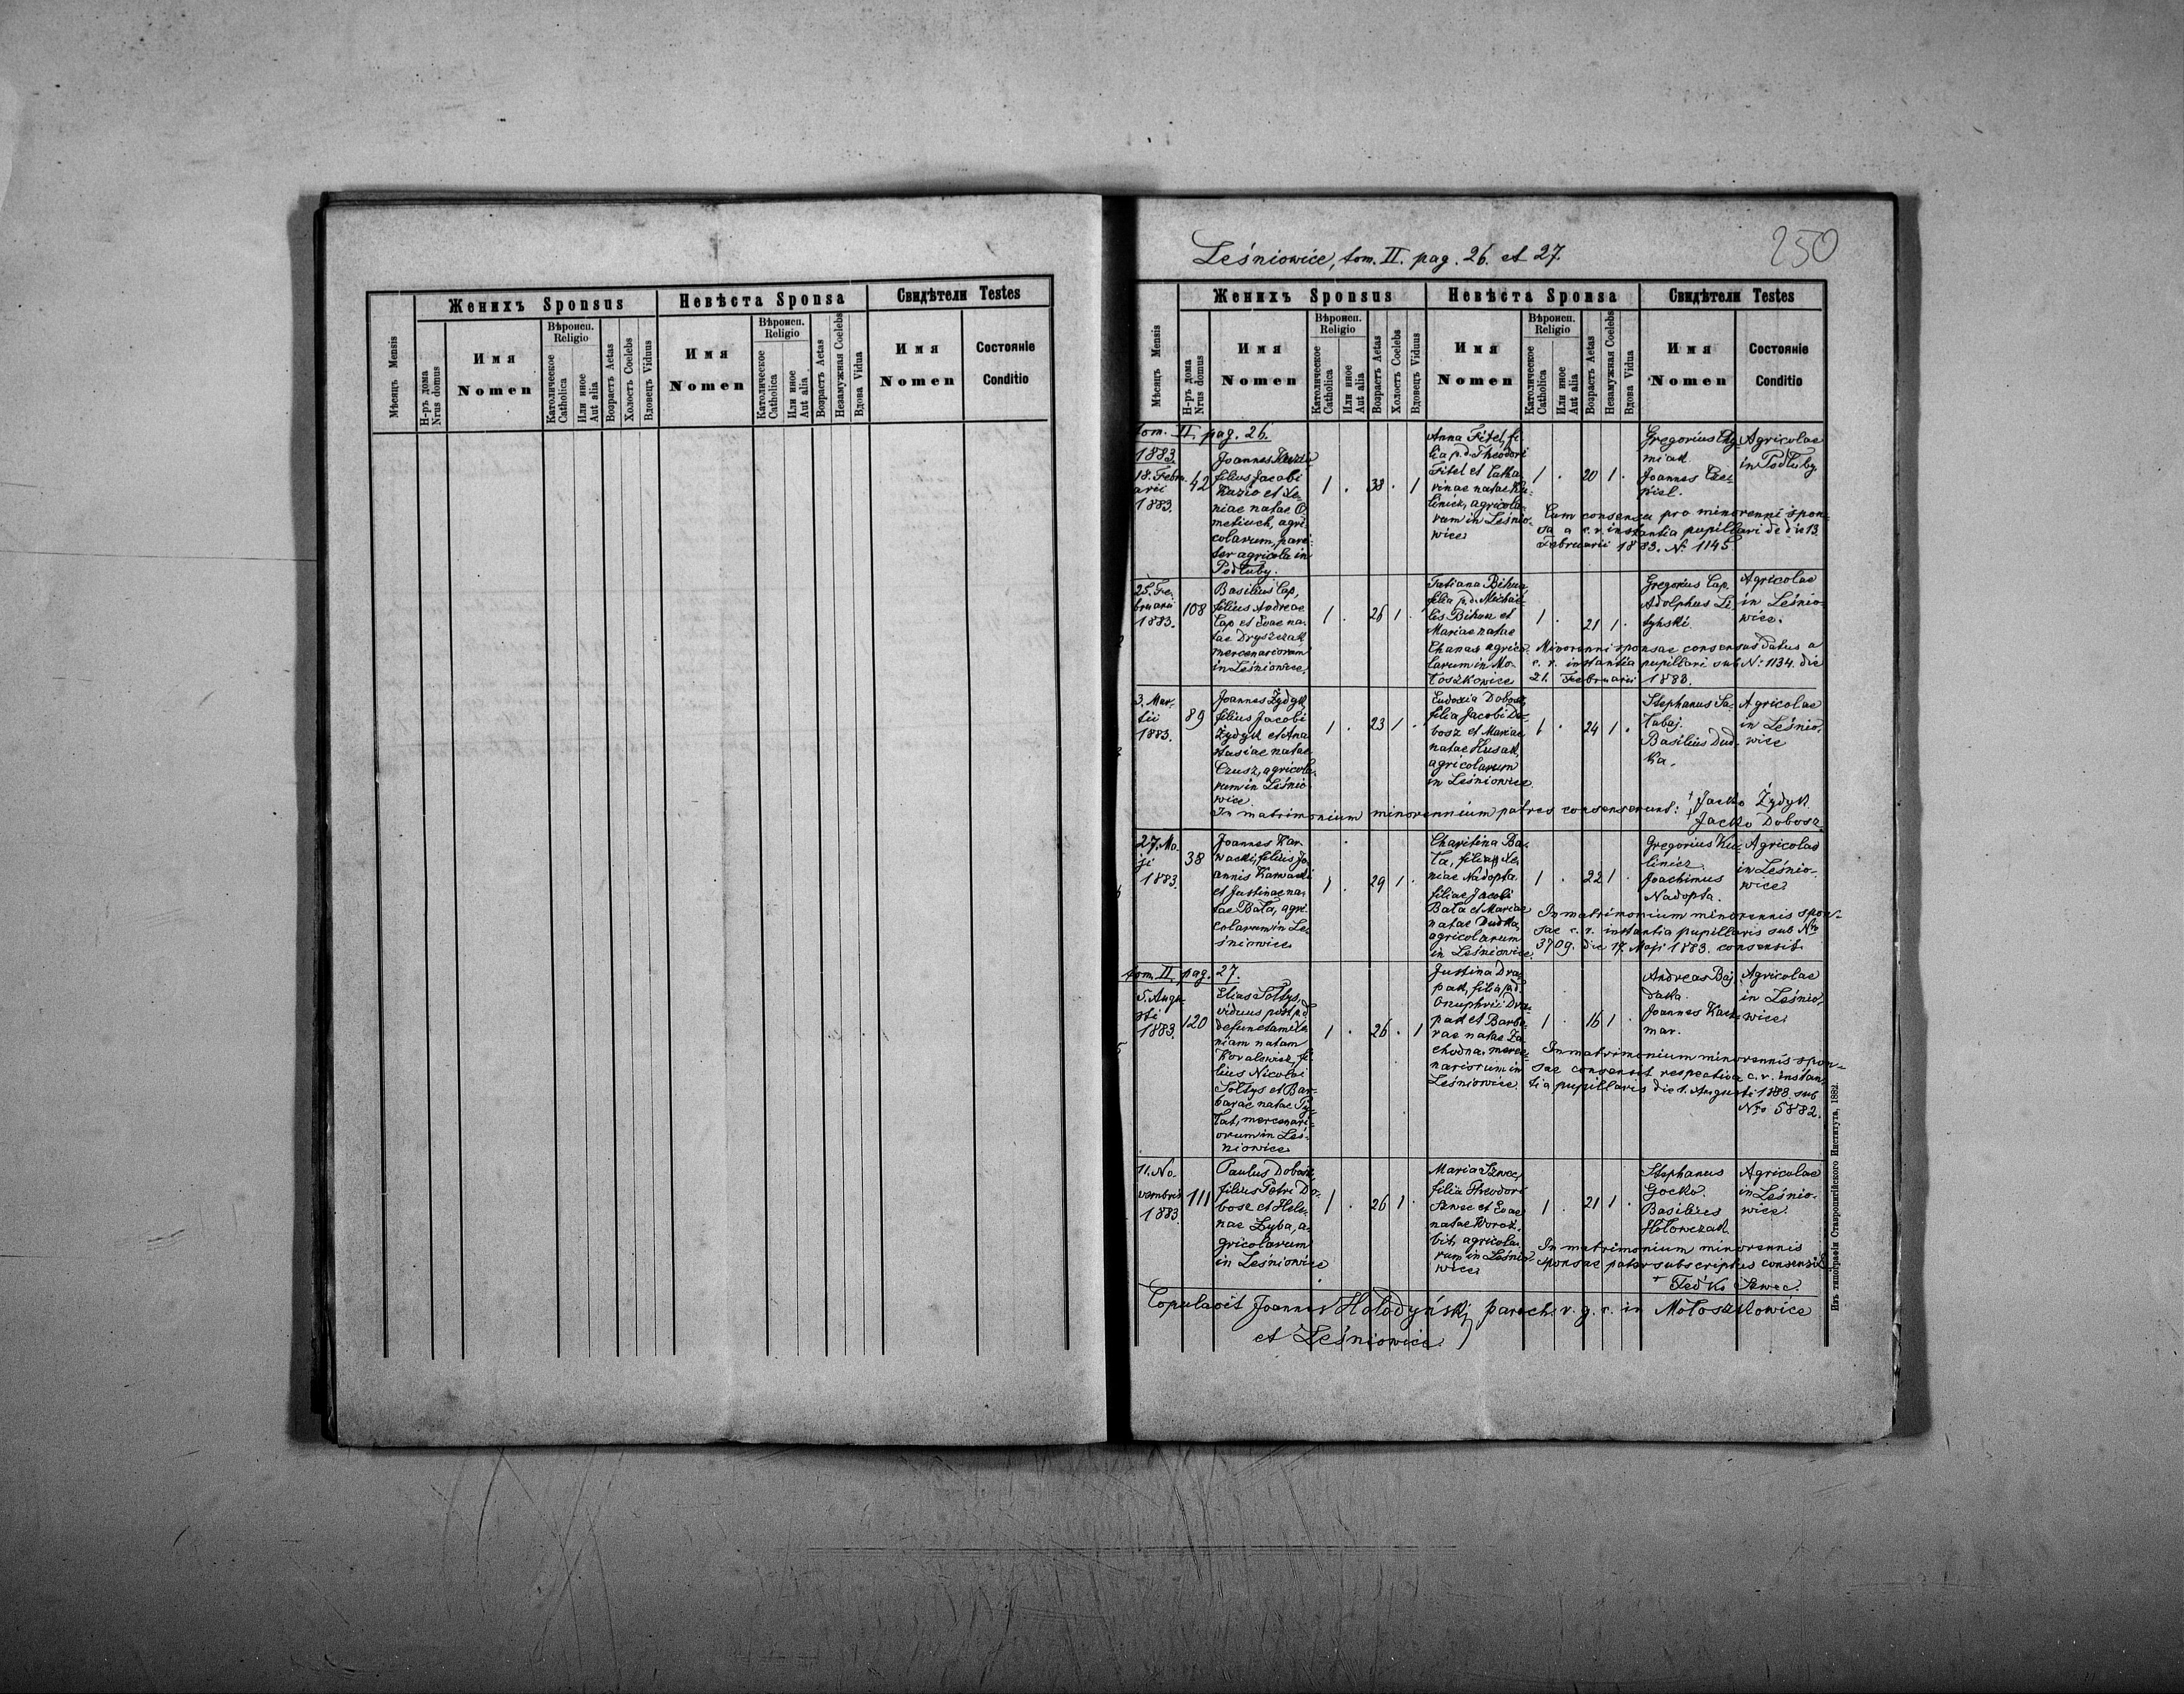 Женихъ Sponsus
Невѣста Sponsa
Свидѣтели Testes
Мѣсяцъ Mensis
Н-ръ дома
Nrus domus
Имя
Nomen
Вѣроисп.
Religio
Католическое
Catholica
Или иное
Aut alia
Возрастъ Aetas
Холостъ Coelebs
Вдовецъ Viduus
Имя
Nomen
Вѣроисп.
Religio
Католическое
Catholica
Или иное
Aut alia
Возрастъ Aetas
Незамужная Coelebs
Вдова Vidua
Имя
Nomen
Состояніе
Conditio
Leśniowice, tom. II. pag. 26. et 27.
250
Женихъ Sponsus
Невѣста Sponsa
Свидѣтели Testes
Мѣсяцъ Mensis
Н-ръ дома
Nrus domus
Имя
Nomen
Вѣроисп.
Religio
Католическое
Catholica
Или иное
Aut alia
Возрастъ Aetas
Холостъ Coelebs
Вдовецъ Viduus
Имя
Nomen
Вѣроисп.
Religio
Католическое
Catholica
Или иное
Aut alia
Возрастъ Aetas
Незамужная Coelebs
Вдова Vidua
Имя
Nomen
Состояніе
Conditio
tom. II. pag. 26.
1883
18. Febru-
arii
1883.
42
Joannes
filius Jacobi
et Xe-
niae natae
agri-
colarum, pari-
ter agricola in
Podłuby.
1 . 33 . 1
Anna Fitel, fi-
lia p.d. Theodori
Fitel et Catha-
rinae natae Ku-
linicz, agricola-
rum in Leśnio-
wice
1 . 20 1 .
Gregorius
Joannes
Agricolae
in Podłuby
Cum consensu pro minorenni spon-
sa a c. r. instantia pupillari de die 13
Februarii 1883. N. 1145.
25. Fe-
bruarii
1883.
108
Basilius Cap,
filius Andreae
Cap et Evae na-
tae Dryszczak
mercenariorum
in Leśniowice.
1 . 26 1 .
Tatiana Bihun
filia p.d. Michae-
lis Bihun et
Mariae natae
Chanas agrico-
larum in Mo-
łoszkowice
1 . 21 1 .
Gregorius Cap
Adolphus Li-
tyński.
Agricolae
in Leśnio-
wice.
Minorenni sponsae consensus datus a
c. r. instantia pupillari sub N: 1134. die
21. Februarii 1883.
3. Mar-
tii
1883.
89
Joannes Żydyk
filius Jacobi
Żydyk et Ana-
stasiae natae
Czusz, agricola-
rum in Leśnio-
wice.
1 . 23 1 .
Eudoxia Dobosz,
filia Jacobi Do-
bosz et Mariae
natae Husak,
agricolarum
in Leśniowice
1 . 24 1 .
Stephanus Sa-
łabaj
Basilius Dud-
ka.
Agricolae
in Leśnio-
wice
In matrimonium minorennium patres consenserunt: † Jacko Żydyk
† Jacko Dobosz
27. Ma-
ji
1883.
38
Joannes Kar-
wacki, filius Jo-
annis Karwacki
et Justinae na-
tae Bała, agri-
colarum in Le-
śniowice
1 . 29 1 .
Charitina Ba-
ła, filia Xe-
niae Nadopta
filiae Jacobi
Bała et Mariae
natae Dudka,
agricolarum
in Leśniowice.
1 . 22 1 .
Gregorius Ku-
linicz
Joachimus
Nadopta.
Agricolae
in Leśnio-
wice
In matrimonium minorennis spon-
sae c. r. instantia pupillaris sub Nro
3709. die 17. Maji 1883. consensit
tom. II. pag. 27.
5. Augu-
sti
1883.
120
Elias Sołtys,
viduus post p.d.
defunctam Xe-
niam natam
Kovalewicz, fi-
lius Nicolai
Sołtys et Bar-
barae natae
mercenari-
orum in Leś-
niowice
1 . 26 . 1
Justina Dra-
pak, filia p.d.
Onuphrii Dra-
pak et Barba-
rae natae Za-
chodna, merce-
nariorum in
Leśniowice
1 . 16 1 .
Andreas Baj-
daka.
Joannes Kacz-
mar.
Agricolae
in Leśnio-
wice
In matrimonium minorennis spon-
sae consensit respectiva c. r. instan-
tia pupillaris die 1. Augusti 1883. sub
Nro 5882.
11. No-
vembris
1883
111
Paulus Dobosz,
filius Petri Do-
bosz et Hele-
nae Zyba, a-
gricolarum
in Leśniowice
1 . 26 1 .
Maria Szwec,
filia Theodori
Szwec et Evae
natae Woroz-
bit, agricola-
rum in Leśnio-
wice
1 . 21 1 .
Stephanus
Gocko.
Basilius
Hołowczak.
Agricolae
in Leśnio-
wice.
In matrimonium minorennis
sponsae pater subscriptus consensit
† Fedko Szwec.
Copulavit Joannes Hołodyński, paroch. r. g. c. in Mołoszkowice
et Leśniowice.
Изъ типографіи Ставропигійского Института, 1882.